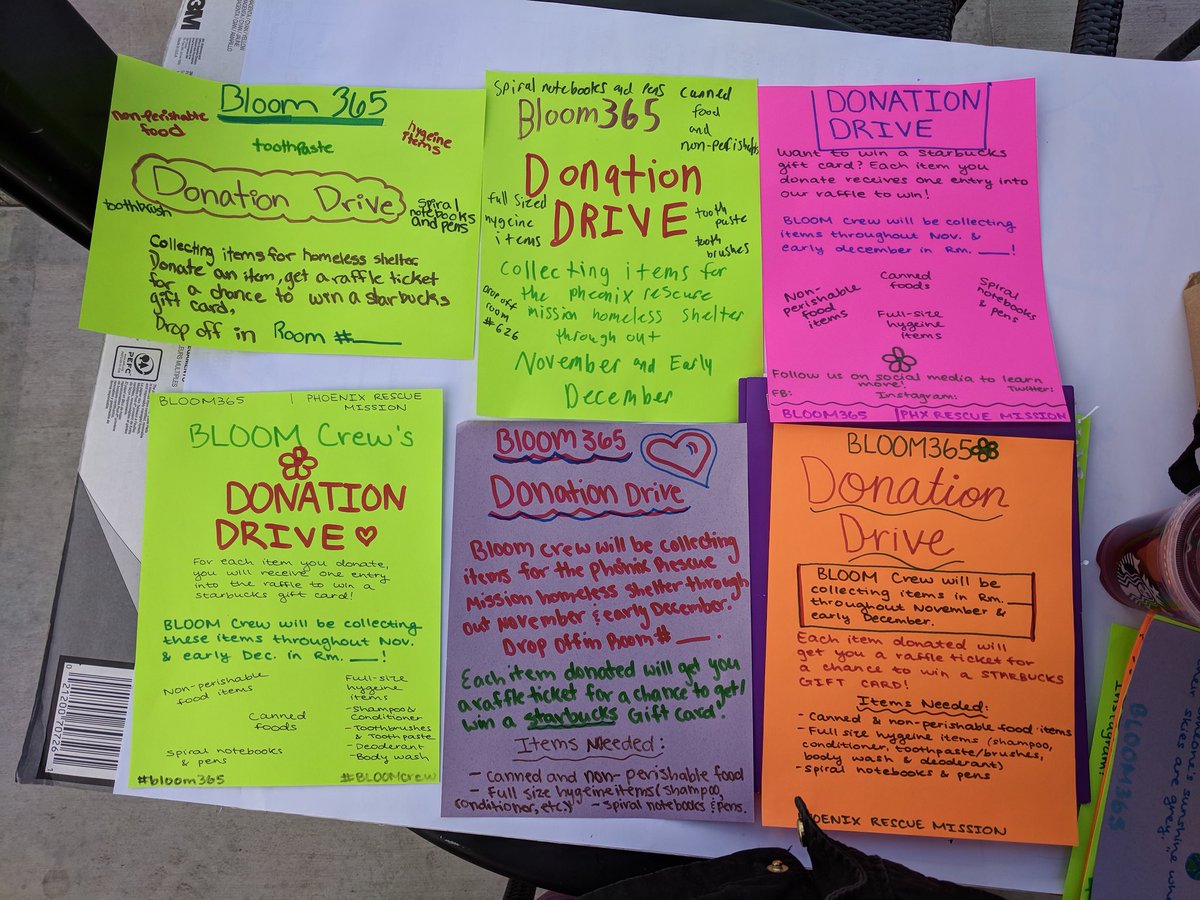 3M
Bloom 365
non-perishable
food
toothpaste
hygeine
items
Donation Drive
toothbrush
spiral
notebooks
and pens
Collecting items for homeless shelter
Donate an item, get a raffle ticket
for a chance to win a starbucks
gift card,
Drop off in Room #___
Spiral notebooks and pens
canned
food
and
non-perishable
Bloom365
Donation
DRIVE
full sized
hygeine
items
tooth
paste
tooth
brushes
Collecting items for
the pheonix rescure
mission homeless shelter
through out
November and Early
December
Drop off
room
#626
DONATION
DRIVE
Want to win a starbucks
gift card? Each item you
donate receives one entry into
our raffle to win!
BLOOM Crew will be collecting
items throughout Nov. &
early december in Rm. ___!
Non-
perishable
food items
Canned
foods
Full-size
hygeine
items
Spiral
notebooks
& Pens
Follow us on social media to learn
more!
FB: Instagram: Twitter:
BLOOM365 | PHX RESCUE MISSION
BLOOM365 | PHOENIX RESCUE
MISSION
BLOOM Crew's
DONATION
DRIVE
For each item you donate,
you will receive one entry
into the raffle to win a
starbucks gift card!
BLOOM Crew will be collecting
these items throughout Nov.
& early Dec. in Rm. ___!
Non-perishable
food items
Canned
foods
Spiral notebooks
& pens
Full-size
hygeine
items
-Shampoo &
Conditioner
-Toothbrushes
& Toothpaste
-Deoderant
-Body wash
#bloom365
#BLOOMCrew
Bloom365
Donation Drive
Bloom crew will be collecting
items for the Phonix Rescue
Mission homeless shelter through
out November & early December.
Drop off in Room # ___.
Each item donated will get you
a raffle ticket for a chance to get/
win a starbucks Gift card!
Items Needed:
- canned and non-perishable food
- Full size hygeine items (shampoo,
conditioner, etc.) - spiral notebooks & pens.
BLOOM365
Donation
Drive
BLOOM Crew will be
collecting items in Rm. ___
throughout November &
early December.
Each item donated will
get you a raffle ticket for
a chance to win a STARBUCKS
GIFT CARD!
Items Needed:
- Canned & non-perishable food items
- Full size hygeine items (shampoo,
conditioner, toothpaste/brushes,
body wash & deoderant)
- Spiral notebooks & pens
OENIX RESCUE MISSION
PEFC
0 21200-70726 1
Instagram:
BLOOM365
skies are grey."